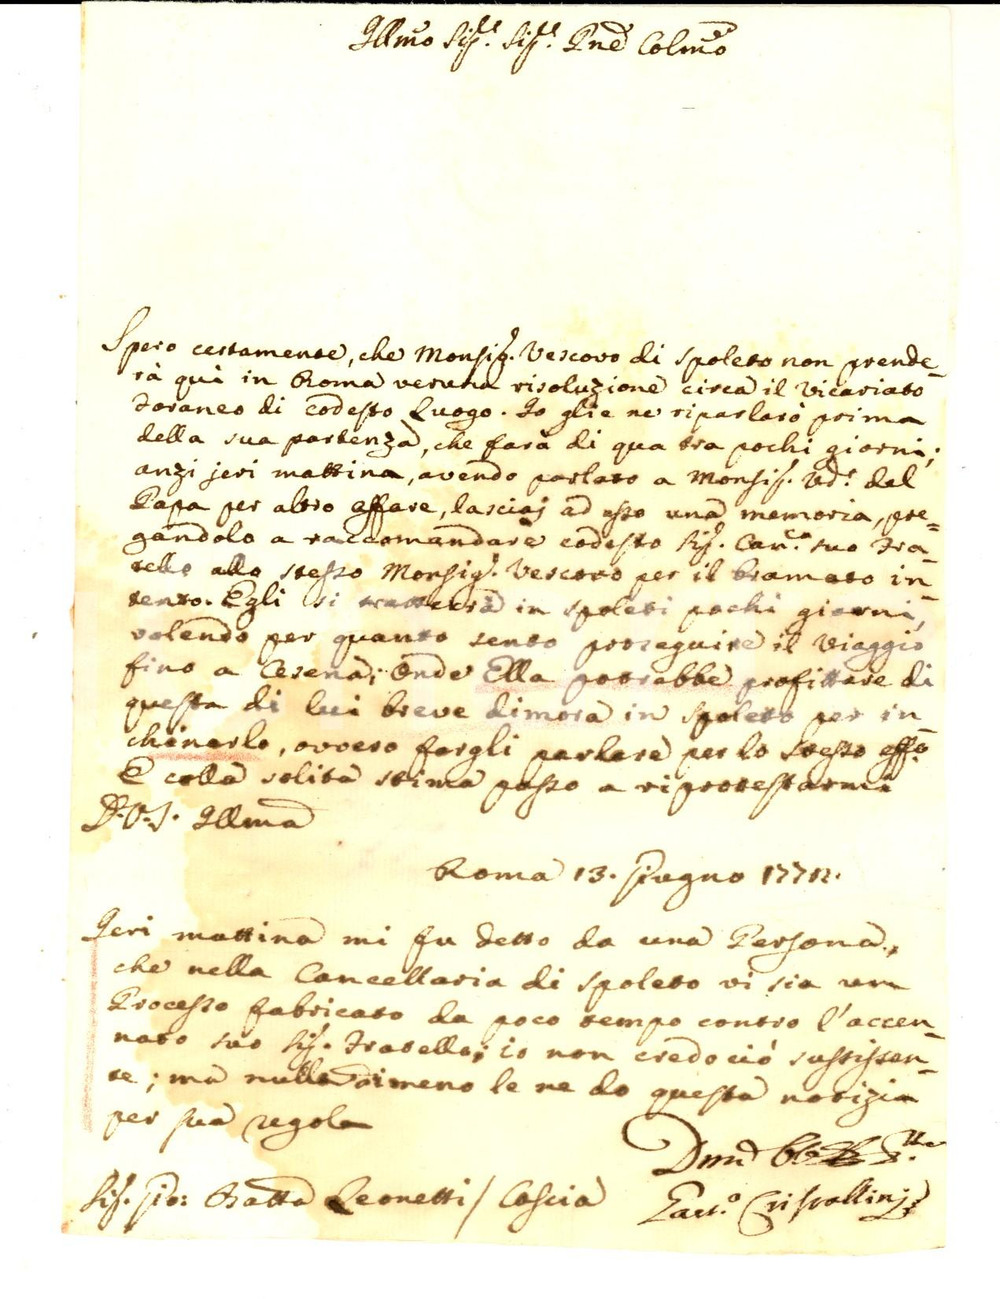 Illmo Sig.re Sig.re Pne Colmo
Spero certamente, che Monsig.r Vescovo di Spoleto non prende-
rà quì in Roma veruna risoluzione circa il Vicariato
Foraneo di codesto Luogo. Io glie ne riparlarò prima
della sua partenza, che farà di qua tra pochi giorni;
anzi jeri mattina, avendo parlato a Monsig.r Ud.e del
Papa per altro affare, lasciaj ad esso una memoria, pre-
gandolo a raccomandare codesto Sig.r Can.co suo Fra-
tello allo stesso Monsig.r Vescovo per il bramato in-
tento. Egli si tratterrà in Spoleti pochi giorni,
volendo per quanto sento proseguire il Viaggio
fino a Cesena; Onde Ella potrebbe profittare di
questa di lui breve dimora in Spoleto per in-
chinarlo, ovvero fargli parlare per lo stesso effo.
E colla solita stima passo a riprotestarmi
D. V. S. Illma
Roma 13. Giugno 1772.
Jeri mattina mi fu detto da una Persona,
che nella Cancellaria di Spoleto vi sia un
Processo fabricato da poco tempo contro l'accen-
nato suo Sig.r Fratello; io non credo ciò sussisten-
te; ma nulladimeno le ne do questa notizia
per sua regola
Sig.r Gio: Batta Leonetti / Cascia
Gaet.o Crispoltinj